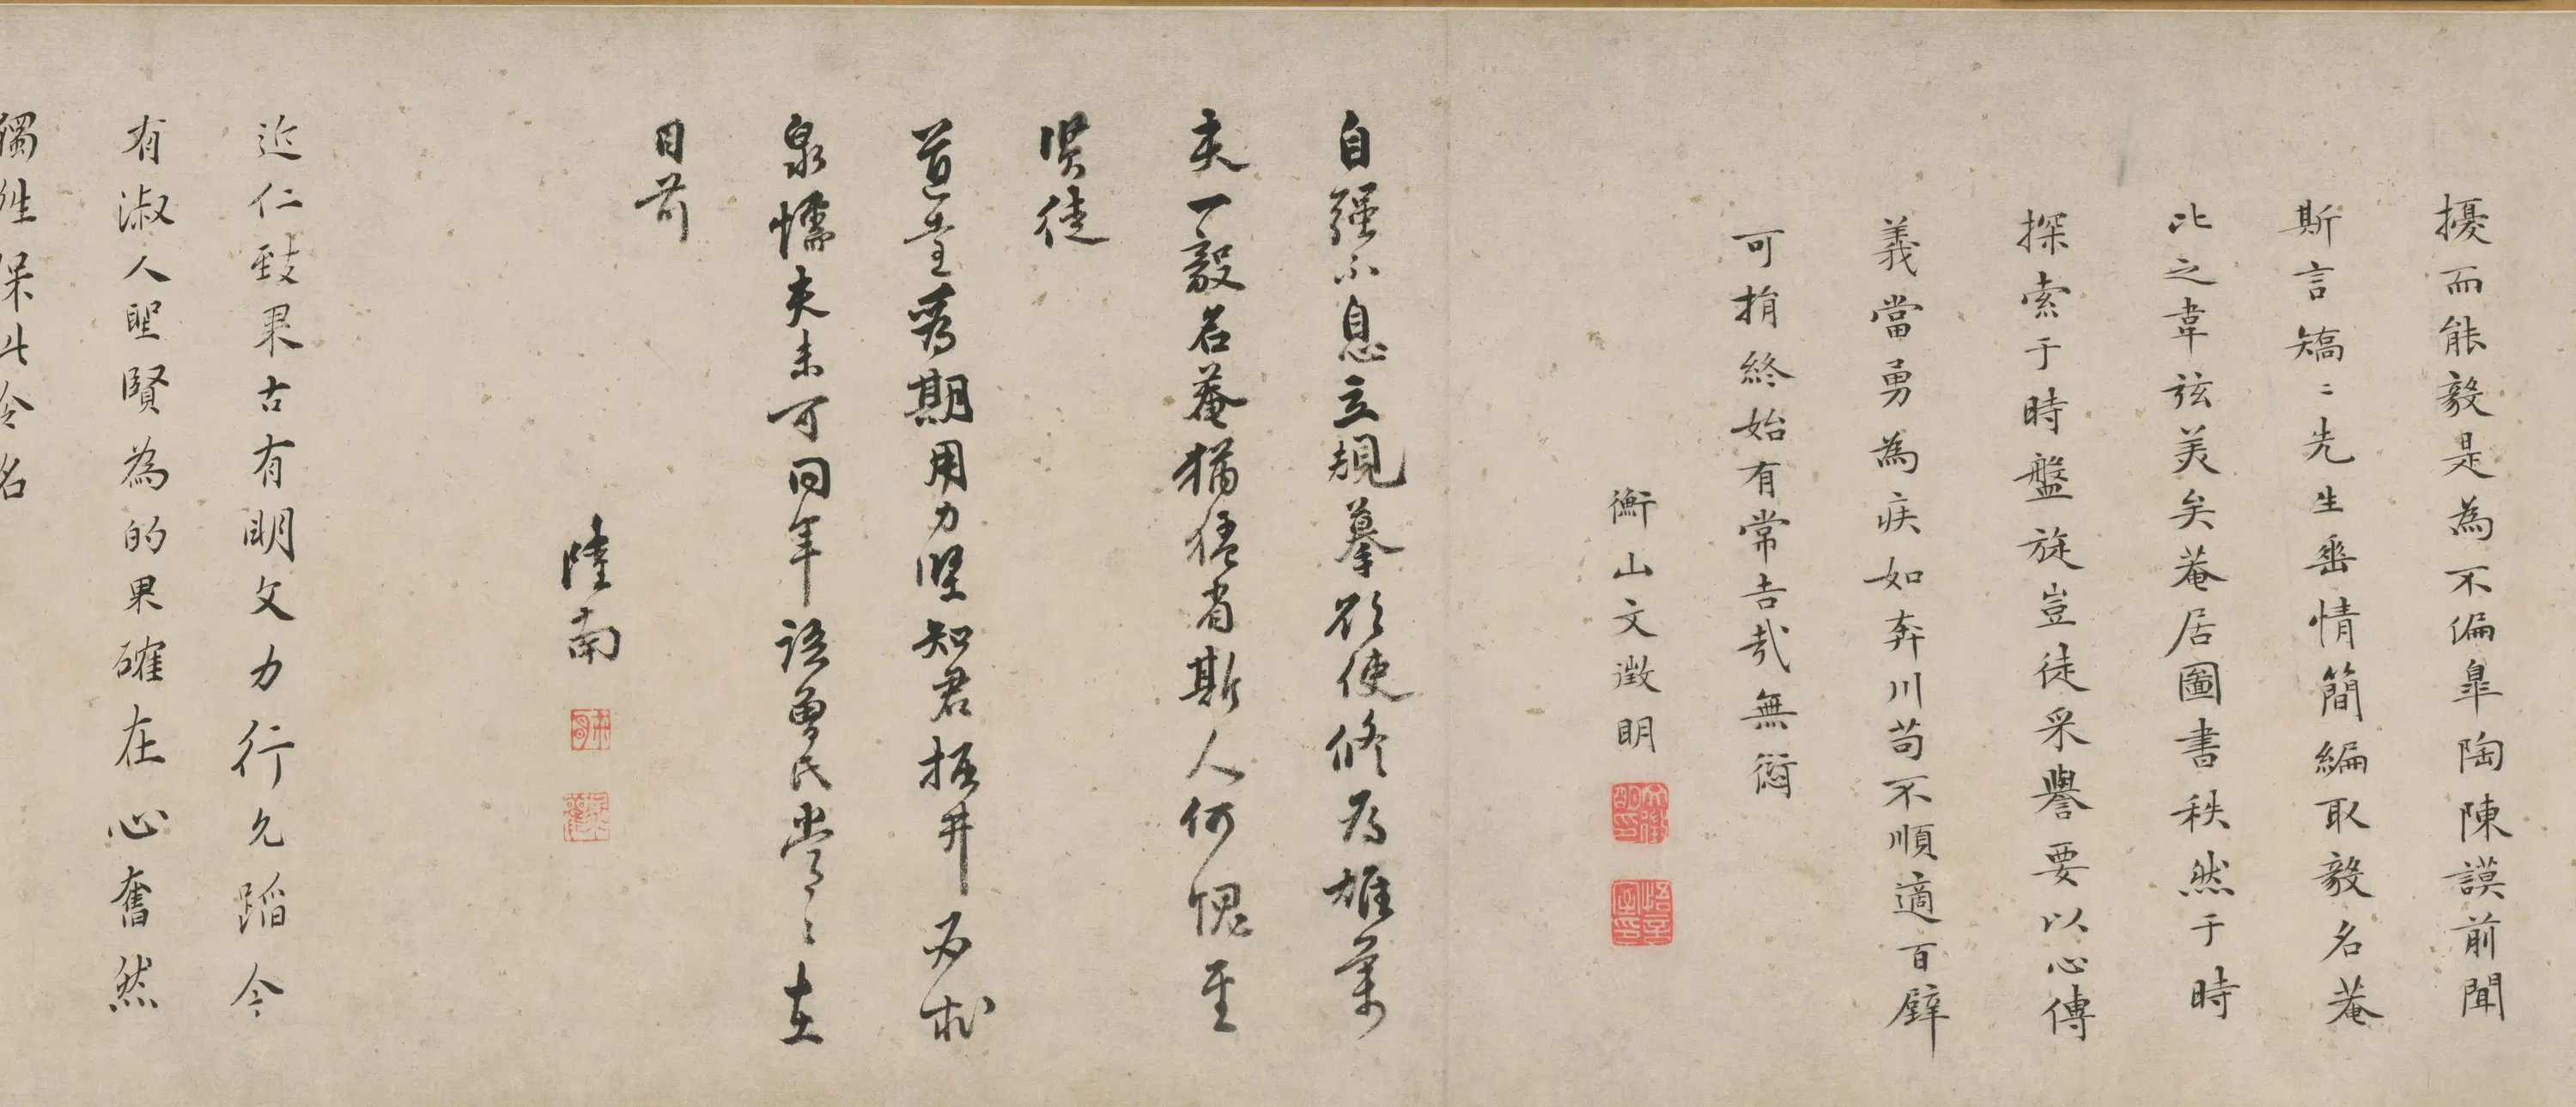 擾而能毅是為不偏臯陶陳謨前聞
斯言矯〻先生垂情簡編取毅名菴
比之韋弦美矣菴居圖書秩然于時
探索于時盤旋豈徒采譽要以心傳
義當勇為疾如奔川苟不順適百辟
可捐終始有常吉哉無愆
衡山文徵明
自強不息立規摹欲使脩為雄萬
夫一毅名菴猶猛省斯人何愧聖
賢徒
道重
期用力堅知君掘井
泉懦夫未可同年語曾氏當〻在
目前
陸南
近仁致果古有明文力行允蹈今
有淑人聖賢為的果確在心奮然
獨
保
令名